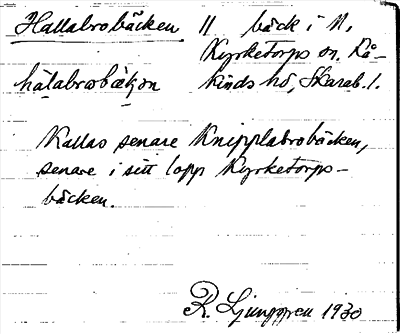 Hallabrobäcken ll bäck i N.
Kyrketorps sn. Kå-
hälabrobækən kinds hd, Skarab. l.
Kallas senare Knipplabrobäcken,
senare i sitt lopp Kyrketorps-
bäcken.
R. Ljunggren 1930